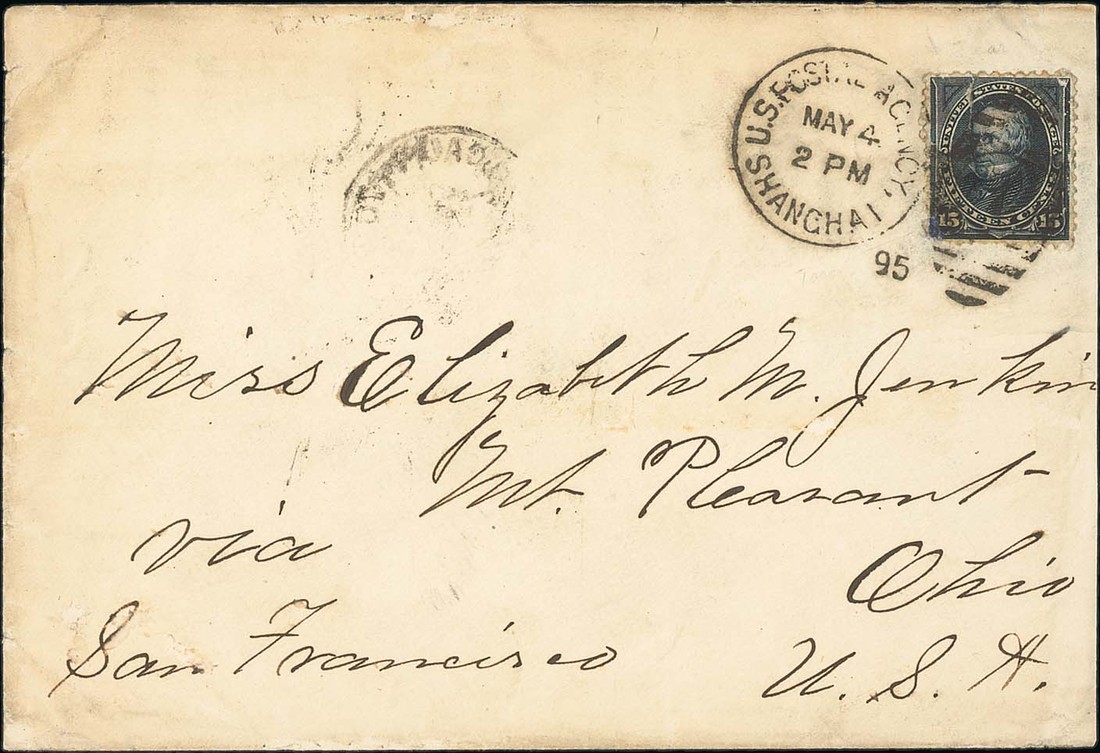 U.S. POSTAL AGENCY,
MAY 4
2 PM
SHANGHAI
95
UNITED STATES POSTAGE
FIFTEEN CENTS
15 15
Miss Elizabeth M. Jenkin
Mt. Pleasant
via
Ohio
San Francisco
U. S. A.